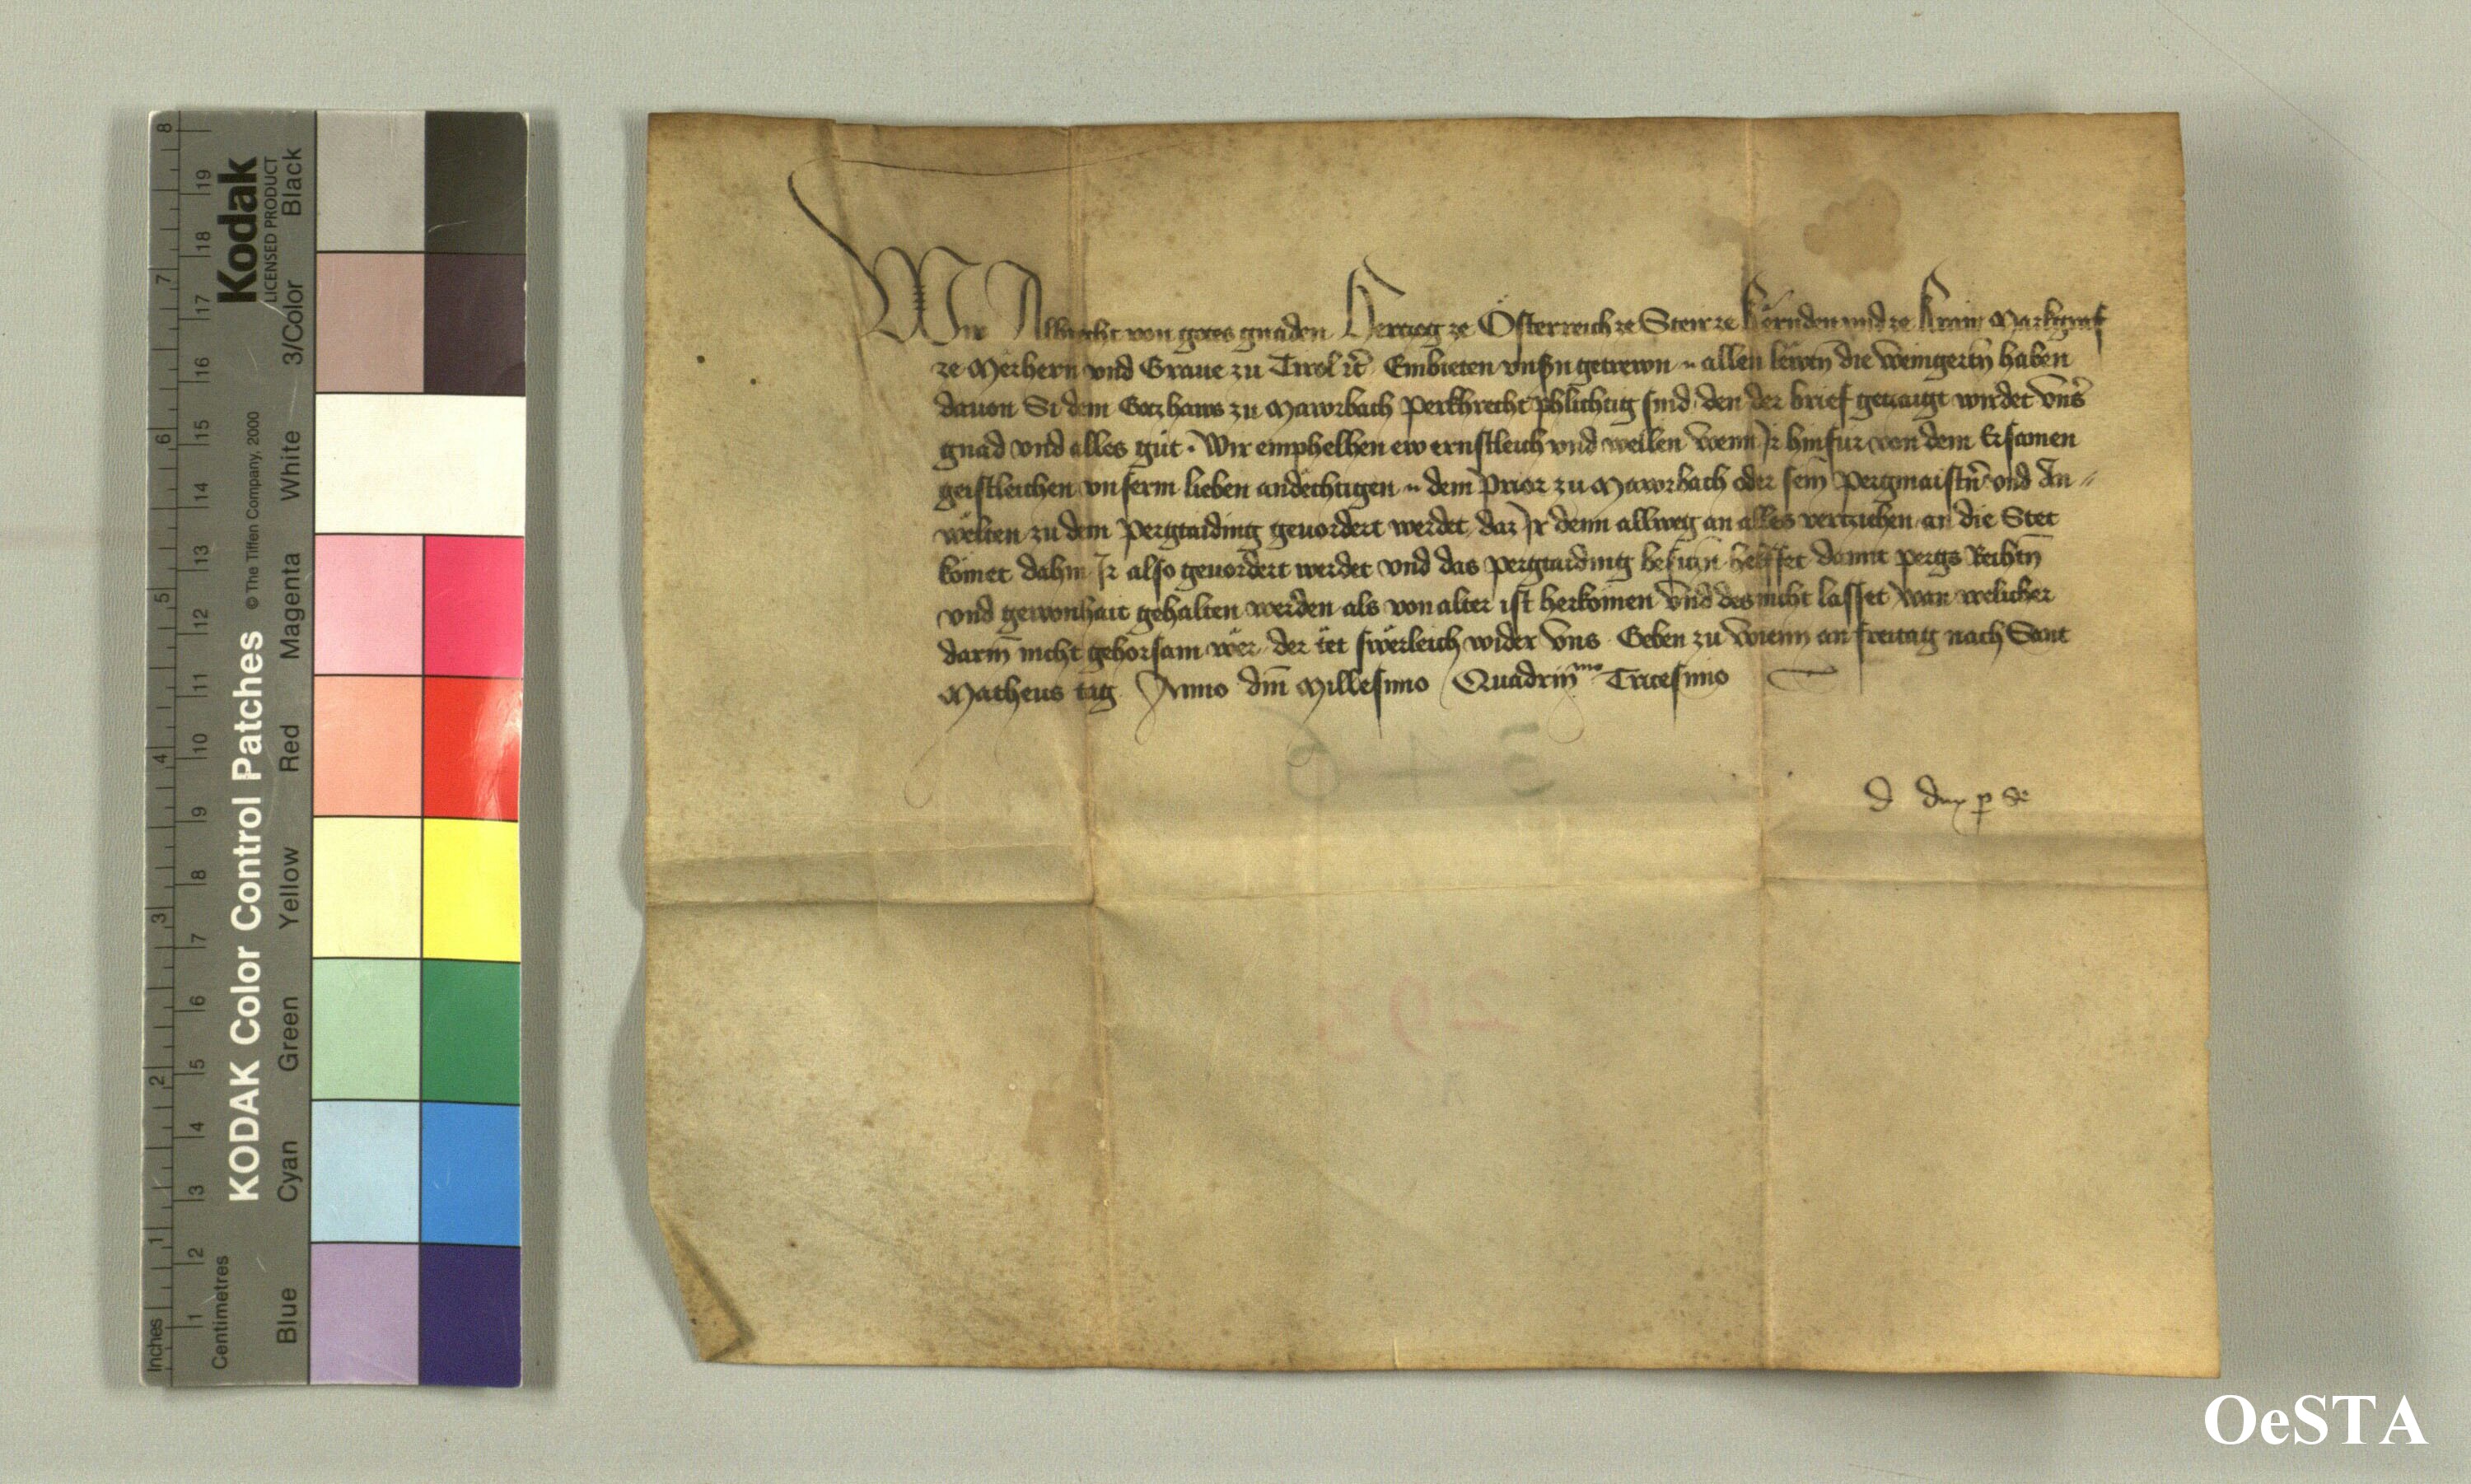 Wir Albrecht von gotes gnaden Herczog ze Österreich ze Steir ze Kërnden vnd ze Krain Markgraf
ze Merhern vnd Graue zu Tirol ꝛc̄ Embieten vnsn̄ getrewn .. allen lewtn̄ die weingertn̄ haben
dauon Si dem Gotzhaws zu Mawrbach perkhrecht phlichtig sind, den der brief geczaigt wirdet vnſ̄
gnad vnd alles güt. Wir emphelhen ew ernstleich vnd wellen wenn Ir hinfür von dem Ersamen
geistleichen vnserm lieben andëchtigen .. dem Prior zu Mawrbach oder sein̄ Pergmaistn̄ vnd An //
wëlten zu dem Pergtaiding geuordert werdet, daz Ir denn allweg an alles vertziehen an die Stet
kömet dahin Ir also geuordert werdet vnd das pergtaiding besiczn̄ helffet damit pergs Rechtn̄
vnd gewonhait gehalten werden als von alter ist herkömen vnd des nicht lasset wan welicher
darin̄ nicht gehorsam wër der tët swërleich wider vns. Geben zu Wienn an freitag nach Sant
Matheus tag Anno dm̄ Millesimo Quadrin̄mo Tricesimo
d dux p se
346
293
KODAK Color Control Patches
© The Tiffen Company, 2000
Kodak
LICENSED PRODUCT
Inches 1 2 3 4 5 6 7 8
Centimetres 1 2 3 4 5 6 7 8 9 10 11 12 13 14 15 16 17 18 19
Blue Cyan Green Yellow Red Magenta White 3/Color Black
OeSTA